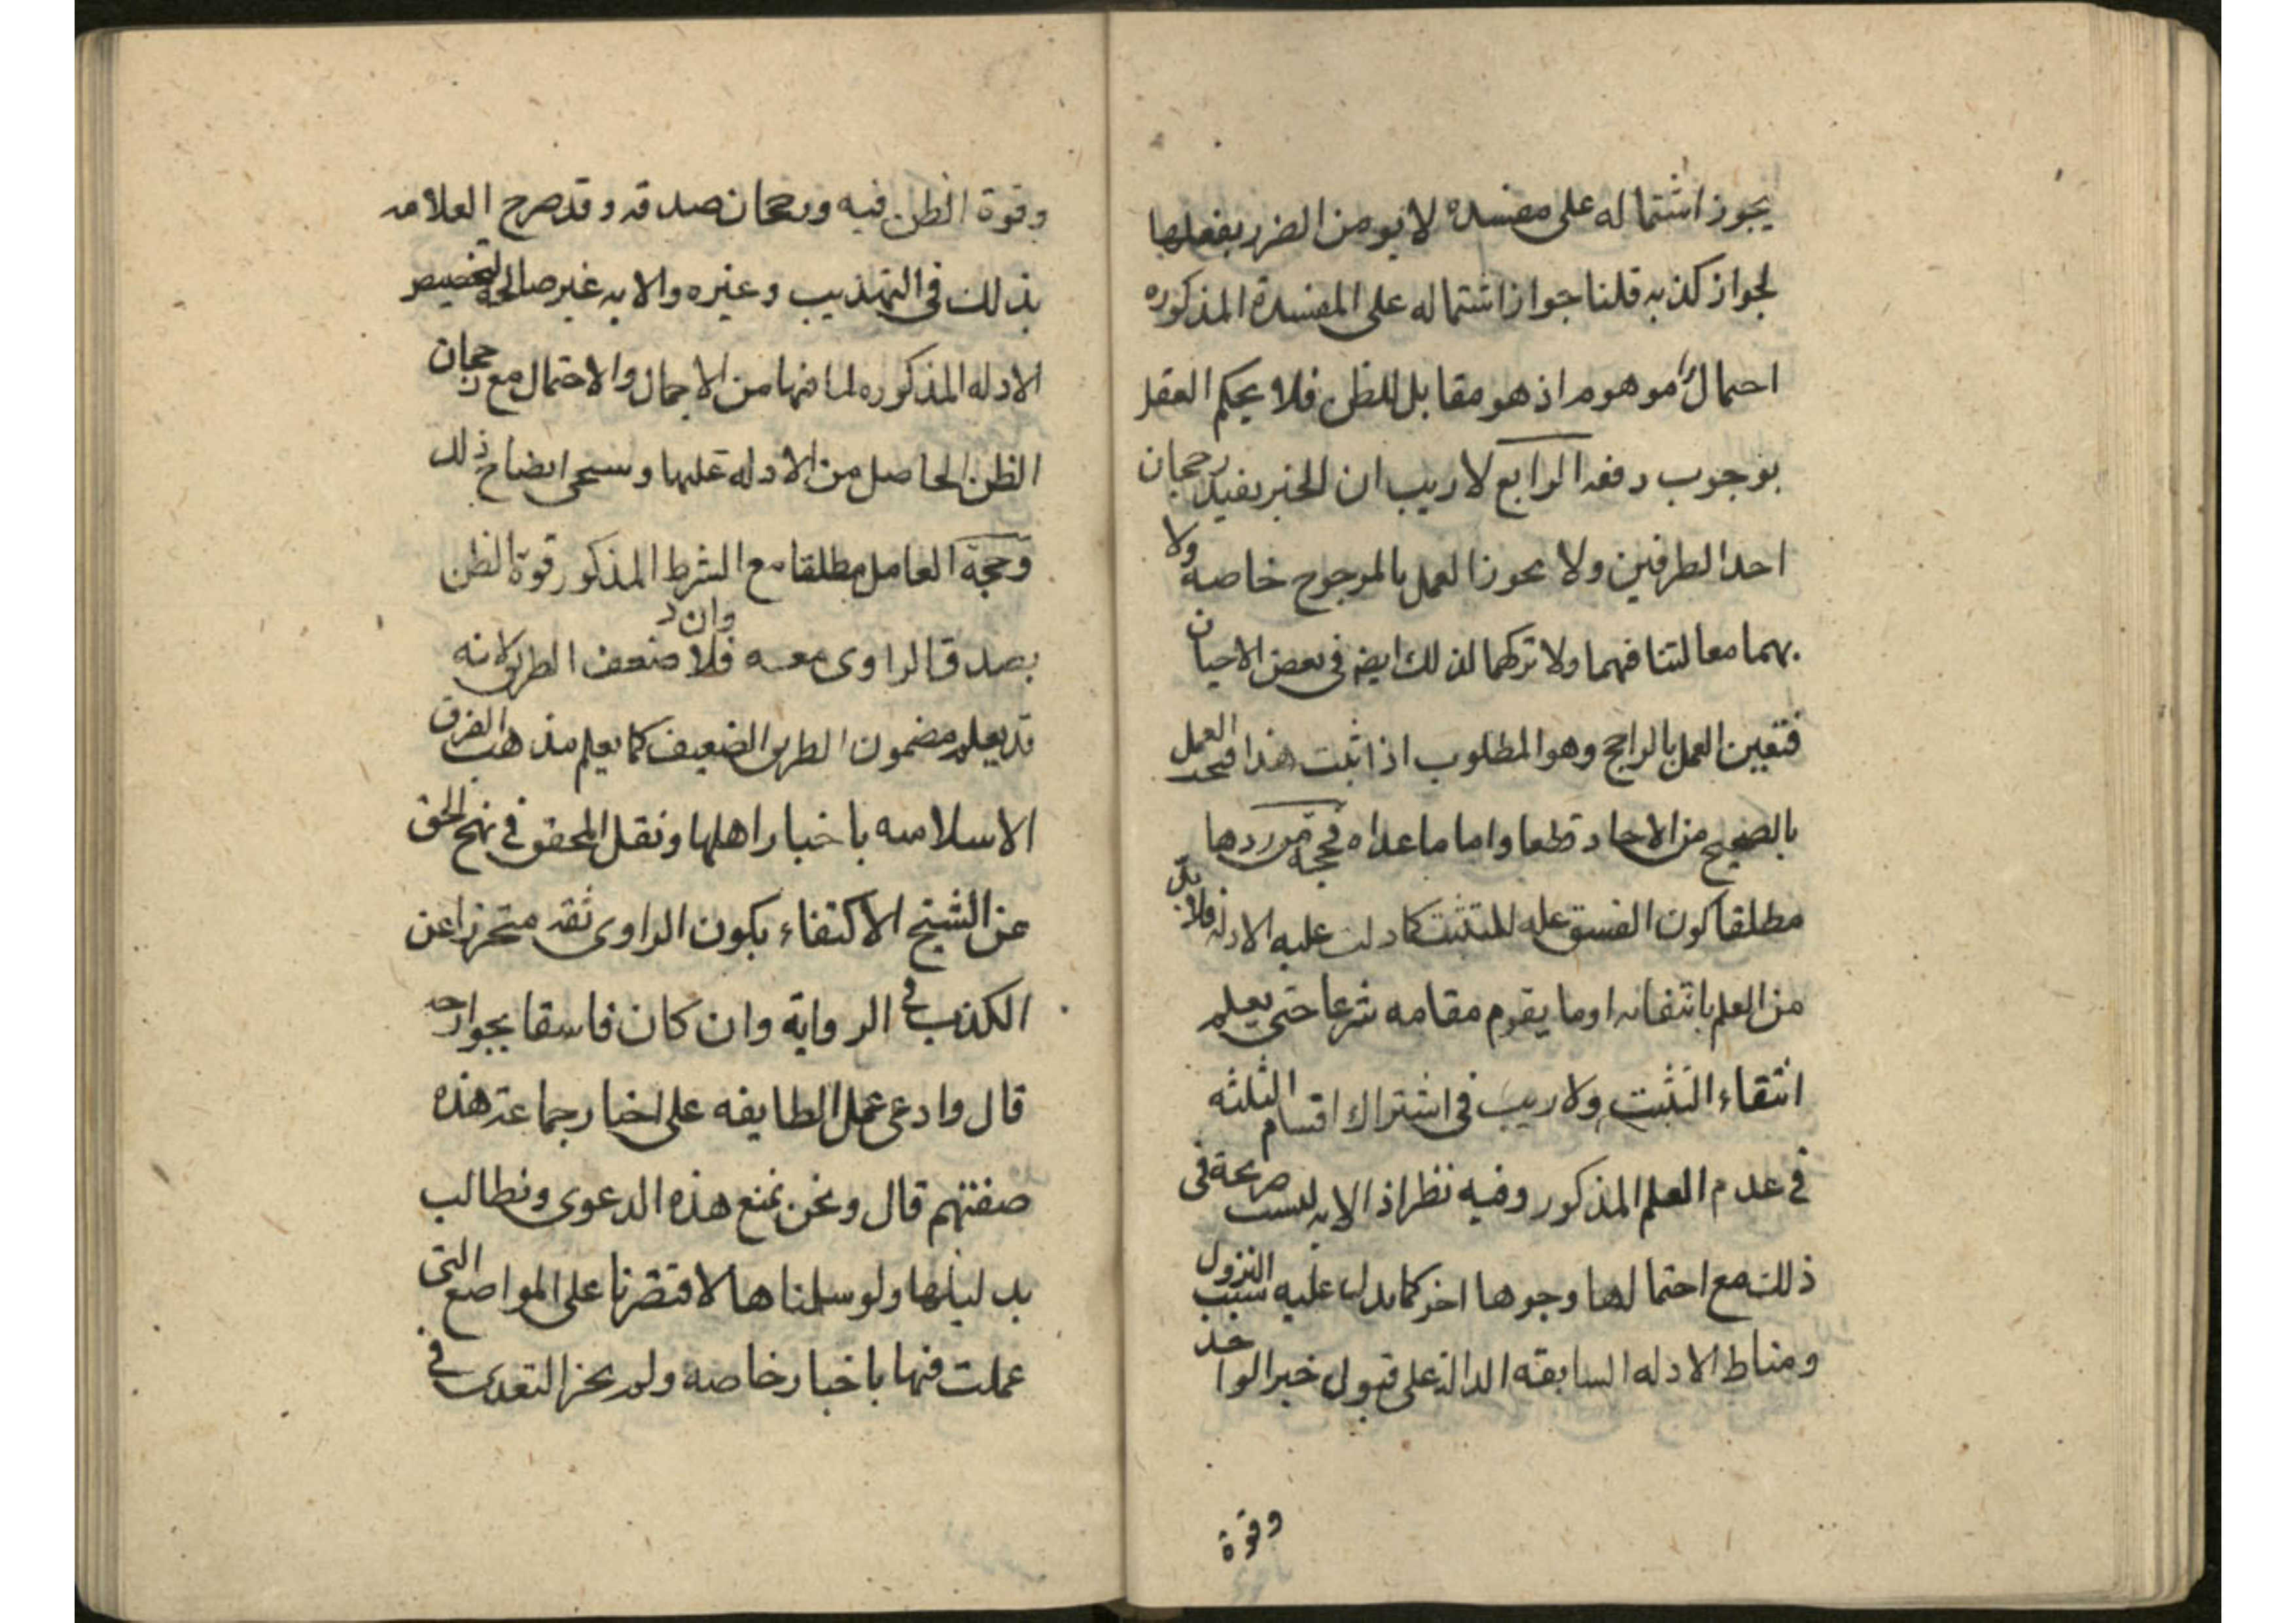 يجوز اشتماله على مفسده لا يومن الضرر بفعلها
لجواز كذبه قلنا جواز اشتماله على المفسدة المذكوره
احتمال موهوم اذ هو مقابل للظن فلا يحكم العقل
بوجوب دفعه الرابع لا ريب ان الخبر يفيد رجحان
احد الطرفين ولا يجوز العمل بالمرجوح خاصه ولا
بهما معا لتنافيهما ولا تركهما لذلك ايضا فى بعض الاحيان
فتعين العمل بالراجح وهو المطلوب اذا ثبت هذا العمل
بالصحيح من الاحاد قطعا واما ما عداه فحجة من ردها
مطلقا كون الفسق عله للتثبت كما دلت عليه الادله فلا بد
من العلم بانتفائه او ما يقوم مقامه شرعا حتى يعلم
انتفاء التثبت ولا ريب فى اشتراك اقسام الثلثه
فى عدم العلم المذكور وفيه نظر اذ الايه ليست صريحة فى
ذلك مع احتمالها وجوها اخر كما يدل عليه سبب النزول
ومناط الادله السابقه الدالة على قبول خبر الواحد
وقوة
وقوة الظن فيه ورجحان صدقه وقد صرح العلامه
بذلك فى التهذيب وغيره والايه غير صالحة لتخصيص
الادله المذكوره لما فيها من الاجمال والاحتمال مع رجحان
الظن الحاصل من الادله عليها وسيجى ايضاح ذلك
وحجة العامل مطلقا مع الشرط المذكور قوة الظن
بصدق الراوى معه وان ضعف الطريق لانه
قد يعلم مضمون الطريق الضعيف كما يعلم مذهب الفرق
الاسلاميه باخبار اهلها ونقل المحقق فى نهج الحق
عن الشيخ الاكتفاء بكون الراوى ثقة متحرزا عن
الكذب فى الرواية وان كان فاسقا بجوارحه
قال وادعى عمل الطايفه على اخبار جماعة هذه
صفتهم قال ونحن نمنع هذه الدعوى ونطالب
بدليلها ولو سلمناها لاقتصرنا على المواضع التى
عملت فيها باخبار خاصه ولم يجز التعدى فى